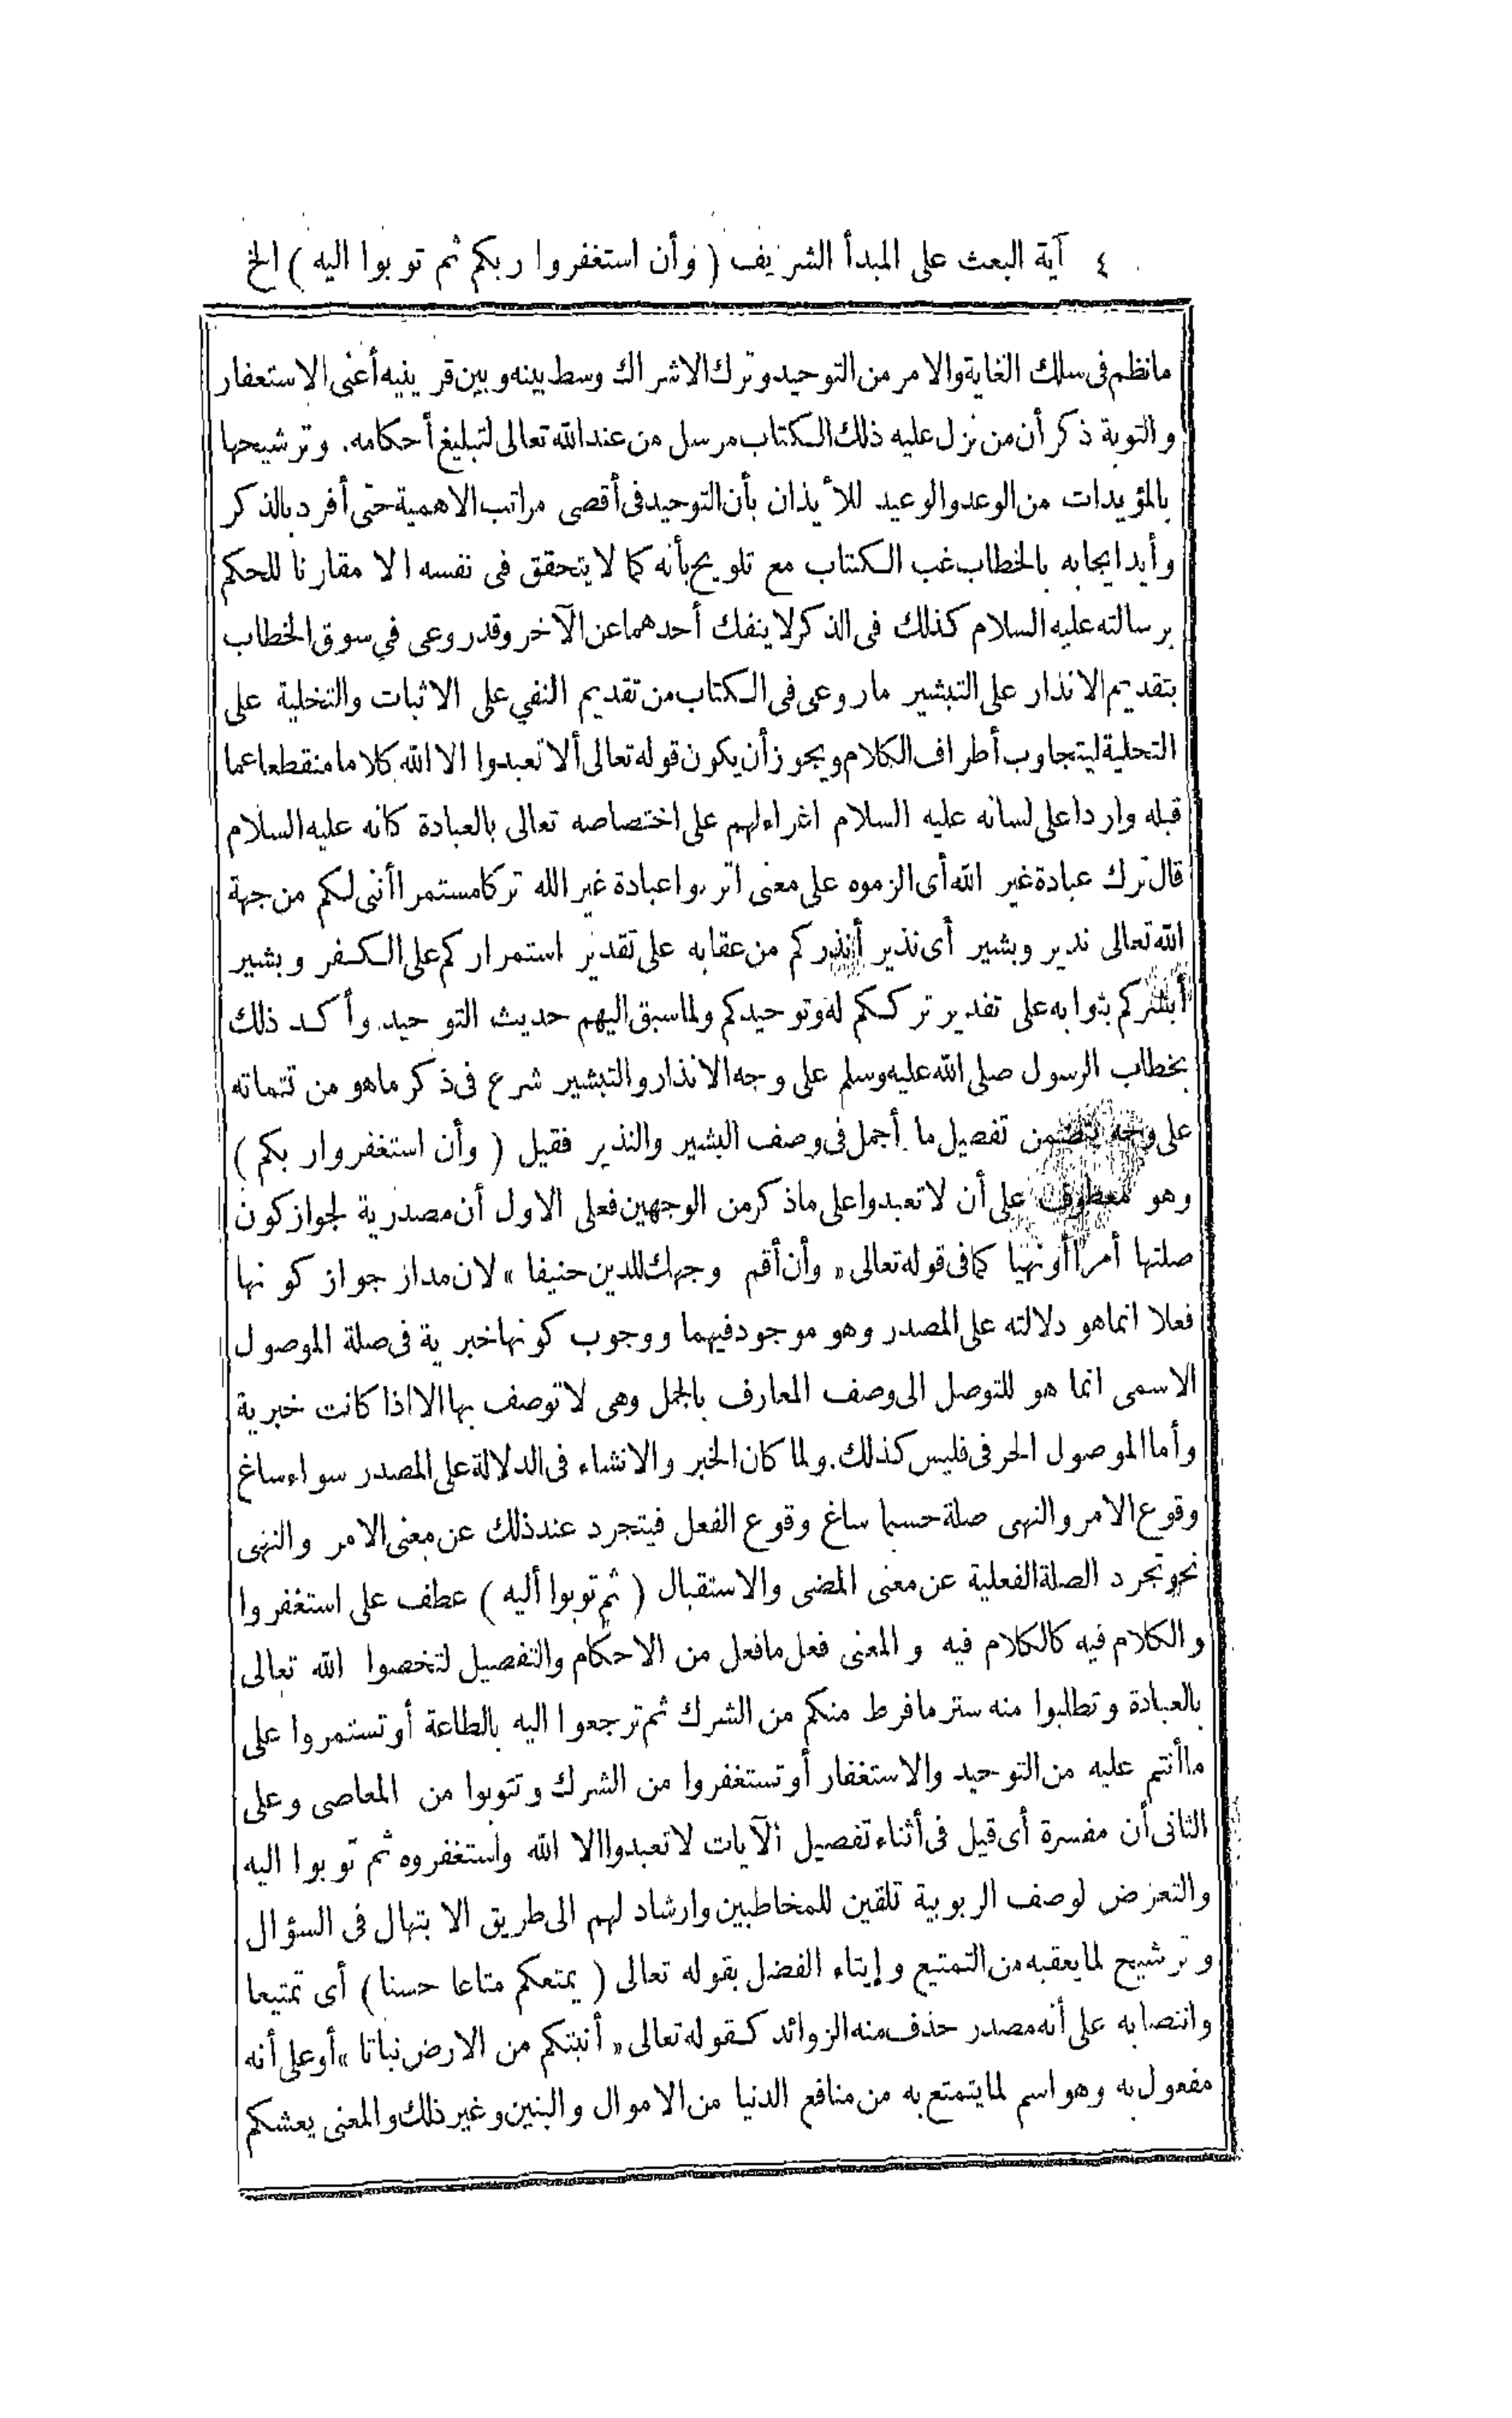 ٤ آية البعث على المبدأ الشريف ( وأن استغفروا ربكم ثم توبوا اليه ) الخ
مانظم فى سلك الغاية والامر من التوحيد وترك الاشراك وسط بينه وبين قرينيه أعنى الاستغفار
والتوبة ذكر أن من نزل عليه ذلك الكتاب مرسل من عند الله تعالى لتبليغ أحكامه. وترشيحها
بالمؤيدات من الوعد والوعيد للأيذان بأن التوحيد فى أقصى مراتب الاهمية حتى أفرد بالذكر
وأيد ايجابه بالخطاب غب الكتاب مع تلويح بأنه كما لا يتحقق فى نفسه الا مقارنا للحكم
برسالته عليه السلام كذلك فى الذكر لا ينفك أحدهما عن الآخر وقد روعى في سوق الخطاب
بتقديم الانذار على التبشير ما روعى فى الكتاب من تقديم النفي على الاثبات والتخلية على
التحلية ليتجاوب أطراف الكلام ويجوز أن يكون قوله تعالى ألا تعبدوا الا الله كلاما منقطعا عما
قبله واردا على لسانه عليه السلام اغراء لهم على اختصاصه تعالى بالعبادة كانه عليه السلام
قال ترك عبادة غير الله أى الزموه على معنى اتركوا عبادة غير الله تركا مستمرا أننى لكم من جهة
الله تعالى ندير وبشير أى نذير أنذركم من عقابه على تقدير استمراركم على الكفر وبشير
أبشركم بثوابه على تقدير ترككم له وتوحيدكم ولما سبق اليهم حديث التوحيد وأكد ذلك
بخطاب الرسول صلى الله عليه وسلم على وجه الانذار والتبشير شرع فى ذكر ما هو من تتماته
على وجه يتضمن تفصيل ما أجمل فى وصف البشير والنذير فقيل ( وأن استغفروا ربكم )
وهو معطوف على أن لا تعبدوا على ما ذكر من الوجهين فعلى الاول أن مصدرية لجواز كون
صلتها أمرا أو نهيا كما فى قوله تعالى « وأن أقم وجهك للدين حنيفا » لان مدار جواز كونها
فعلا انما هو دلالته على المصدر وهو موجود فيهما ووجوب كونها خبرية فى صلة الموصول
الاسمى انما هو للتوصل الى وصف المعارف بالجمل وهى لا توصف بها الا اذا كانت خبرية
وأما الموصول الحرفى فليس كذلك. ولما كان الخبر والانشاء فى الدلالة على المصدر سواء ساغ
وقوع الامر والنهى صلة حسبما ساغ وقوع الفعل فيتجرد عند ذلك عن معنى الامر والنهى
نحو تجرد الصلة الفعلية عن معنى المضى والاستقبال ( ثم توبوا أليه ) عطف على استغفروا
والكلام فيه كالكلام فيه والمعنى فعل ما فعل من الاحكام والتفصيل لتخصوا الله تعالى
بالعبادة وتطلبوا منه ستر ما فرط منكم من الشرك ثم ترجعوا اليه بالطاعة أو تستمروا على
ما أنتم عليه من التوحيد والاستغفار أو تستغفروا من الشرك وتتوبوا من المعاصى وعلى
الثانى أن مفسرة أى قيل فى أثناء تفصيل الآيات لا تعبدوا الا الله واستغفروه ثم توبوا اليه
والتعرض لوصف الربوبية تلقين للمخاطبين وارشاد لهم الى طريق الابتهال فى السؤال
وترشيح لما يعقبه من التمتيع وإيتاء الفضل بقوله تعالى ( يمتعكم متاعا حسنا ) أى تمتيعا
وانتصابه على أنه مصدر حذف منه الزوائد كقوله تعالى « أنبتكم من الارض نباتا » أو على أنه
مفعول به وهو اسم لما يتمتع به من منافع الدنيا من الاموال والبنين وغير ذلك والمعنى يعشكم